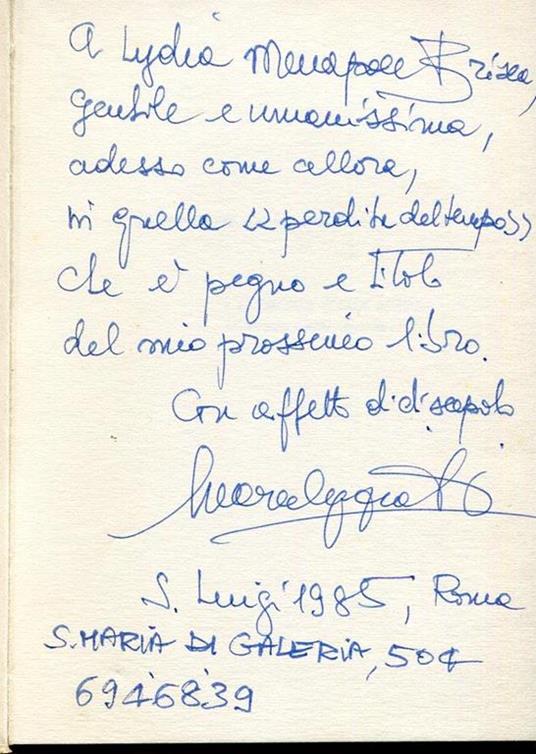 A Lydia Menapace Brisca,
gentile e umanissima,
adesso come allora,
in quella «perdita del tempo»
che è pegno e titolo
del mio prossimo libro.
Con affetto di discepolo
S. Luigi 1985, Roma
S. MARIA DI GALERIA, 504
6946839